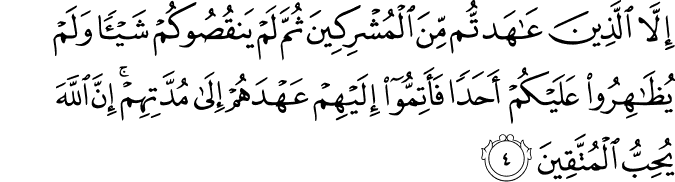 إِلَّا ٱلَّذِينَ عَـٰهَدتُّم مِّنَ ٱلْمُشْرِكِينَ ثُمَّ لَمْ يَنقُصُوكُمْ شَيْـًٔا وَلَمْ
يُظَـٰهِرُوا۟ عَلَيْكُمْ أَحَدًا فَأَتِمُّوٓا۟ إِلَيْهِمْ عَهْدَهُمْ إِلَىٰ مُدَّتِهِمْ ۚ إِنَّ ٱللَّهَ
يُحِبُّ ٱلْمُتَّقِينَ ٤